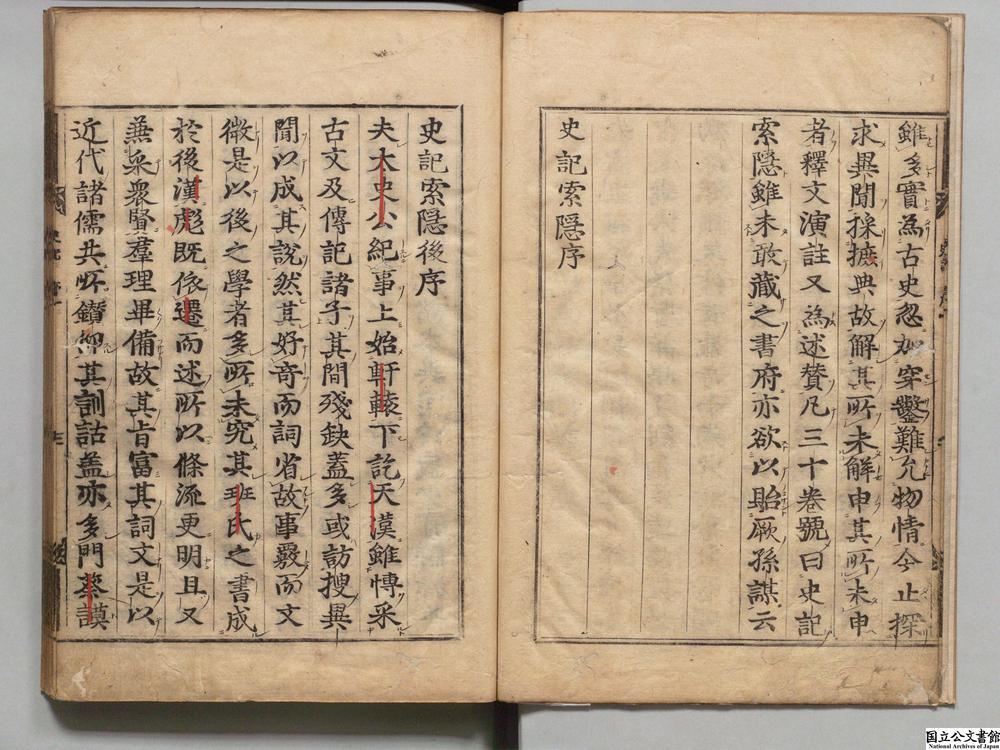 雖多實爲古史忽加穿鑿難允物情今止探
求異聞採摭典故解其所未解申其所未申
者釋文演註又爲述贊凡三十卷號曰史記
索隱雖未敢藏之書府亦欲以貽厥孫謀云
史記索隱序
史記索隱後序
夫太史公紀事上始軒轅下訖天漢雖博采
古文及傳記諸子其間殘缺蓋多或訪搜異
聞以成其說然其好奇而詞省故事覈而文
微是以後之學者多所未究其班氏之書成
於後漢彪旣依遷而述所以條流更明且又
兼采衆賢羣理畢備故其旨富其詞文是以
近代諸儒共所鑽仰其訓詁蓋亦多門蔡謨
国立公文書館
National Archives of Japan